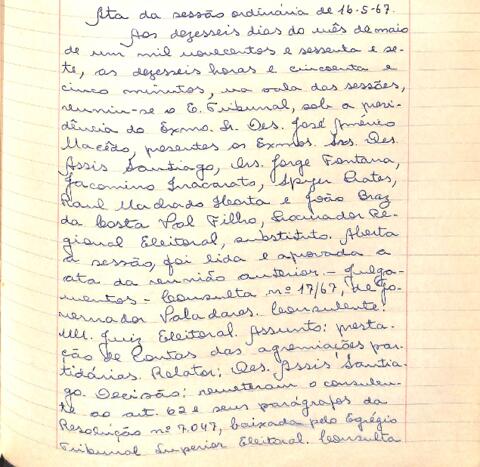 Ata da sessão ordinária de 16-5-67.
Aos dezesseis dias do mês de maio
de um mil novecentos e sessenta e se-
te, às dezesseis horas e cincoenta e
cinco minutos, na sala das sessões,
reuniu-se o E. Tribunal, sob a presi-
dência do Exmo. Sr. Des. José Américo
Macêdo, presentes os Exmos. Srs. Des.
Assis Santiago, Drs. Jorge Fontana,
Jacomino Inacarato, Spyer Prates,
Raul Machado Horta e João Braz
da Costa Val Filho, Procurador Re-
gional Eleitoral, substituto. Aberta
a sessão, foi lida e aprovada a
ata da reunião anterior. - Julga-
mentos - Consulta nº 17/67, de Go-
vernador Valadares. Consulente:
MM. Juiz Eleitoral. Assunto: presta-
ção de Contas das agremiações par-
tidárias. Relator: Des. Assis Santia-
go. Decisão: remeteram o consulen-
te ao art. 62 e seus parágrafos da
Resolução nº 7.047, baixada pelo Egrégio
Tribunal Superior Eleitoral. Consulta